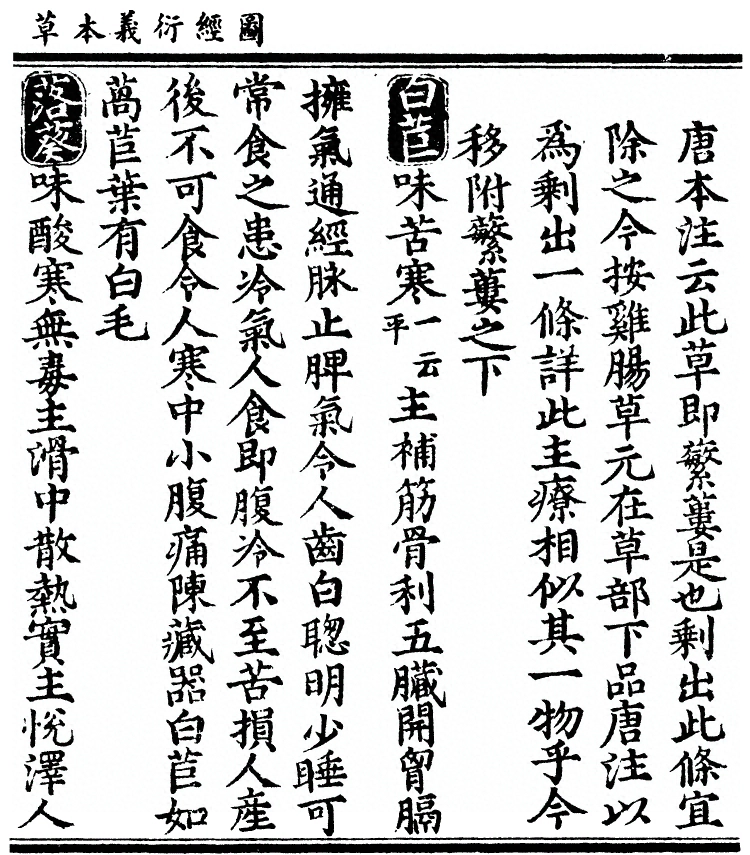 圖經衍義本草
唐本注云此草即蘩蔞是也剩出此條宜
除之今按雞腸草元在草部下品唐注以
爲剩出一條詳此主療相似其一物乎今
移附蘩蔞之下
白苣味苦寒一云平主補筋骨利五臟開胷膈
擁氣通經脉止脾氣令人齒白聰明少睡可
常食之患冷氣人食即腹冷不至苦損人産
後不可食令人寒中小腹痛陳藏器白苣如
萵苣葉有白毛
落葵味酸寒無毒主滑中散熱實主悅澤人